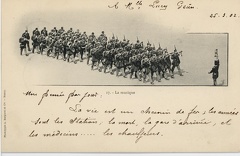 A Mlle Lucy
25.3.02.
15 - La consigne
Mon
La vie est un chemin de fer; les années
sont les stations, la mort, la gare d'arrivée, et
les médecins .... les chauffeurs.